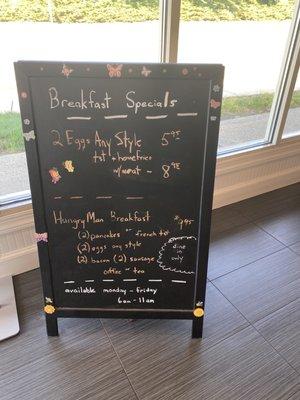 Breakfast Specials
2 Eggs Any Style 5.95
tst + hometries
w/meat - 8.95
Hungry Man Breakfast $9.95
(2) pancakes or french tst
(2) eggs any style
(2) bacon (2) sausage
coffee or tea
dine in
only
available monday - friday
6am - 11am